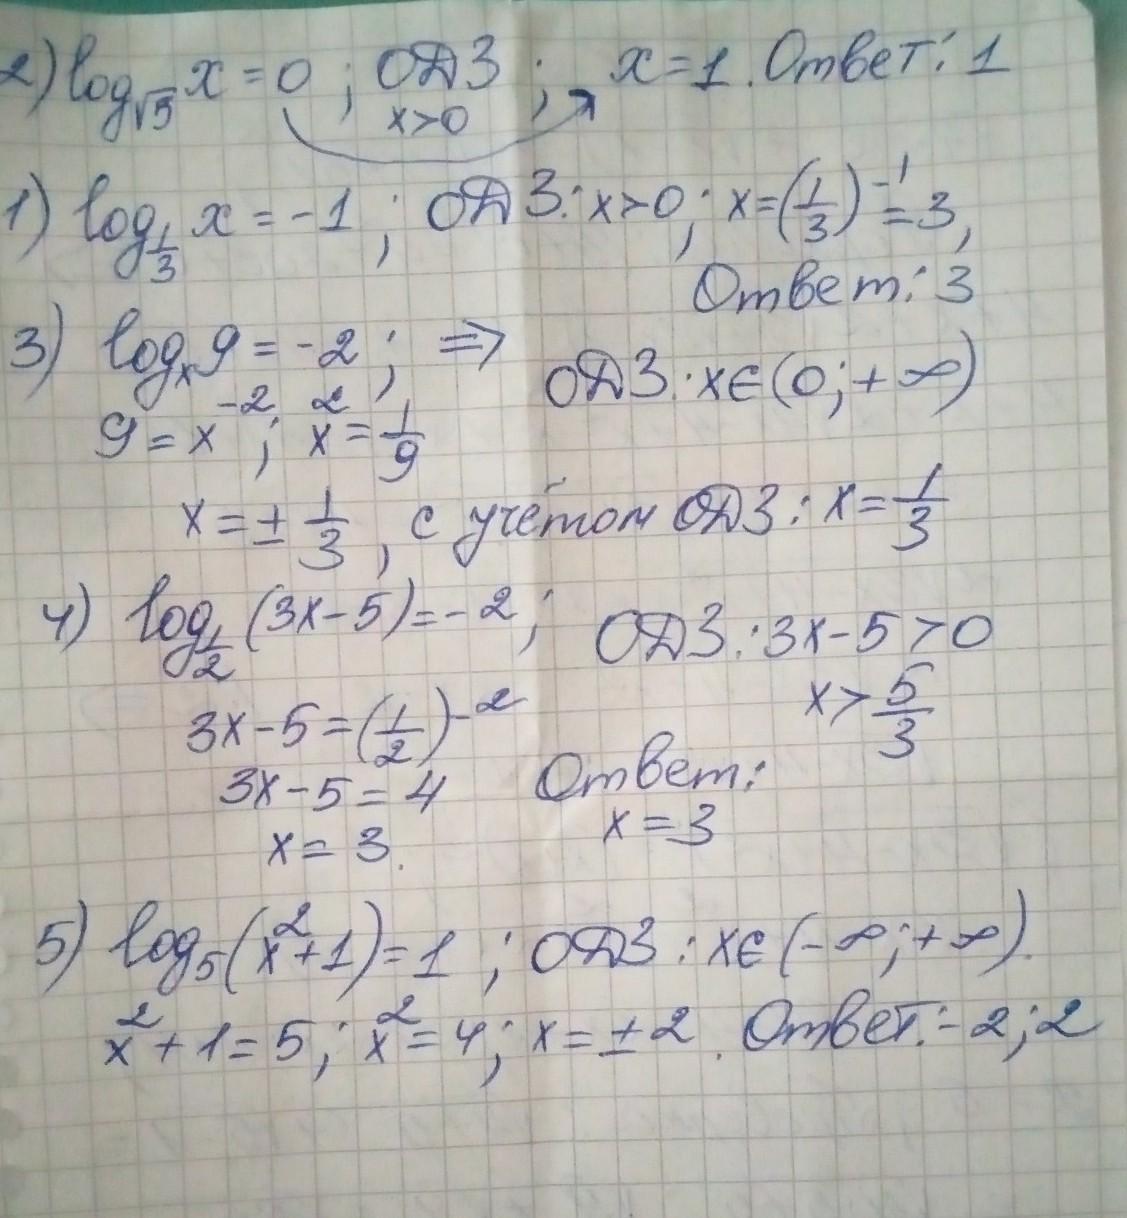 2) log√5 x = 0 ; ОДЗ x>0 ; x = 1. Ответ: 1
1) log1/3 x = -1 ; ОДЗ: x>0 ; x = (1/3)^-1 = 3,
Ответ: 3
3) logx 9 = -2 ; ⇒ ОДЗ: x∈(0;+∞)
9 = x^-2 ; x^2 = 1/9
x = ± 1/3 , с учётом ОДЗ: x = 1/3
4) log1/2 (3x-5) = -2 ; ОДЗ: 3x-5>0
x > 5/3
3x-5 = (1/2)^-2
3x-5 = 4 Ответ:
x = 3. x = 3
5) log5 (x^2+1) = 1 ; ОДЗ: x∈(-∞;+∞).
x^2+1 = 5 ; x^2 = 4 ; x = ±2. Ответ: -2;2